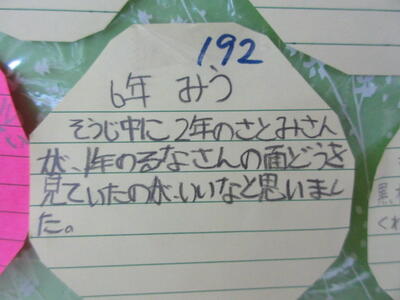 192
6年 みう
そうじ中に2年のさとみさん
が、1年のるなさんの面どうを
見ていたのが、いいなと思いまし
た。
黒
くれ